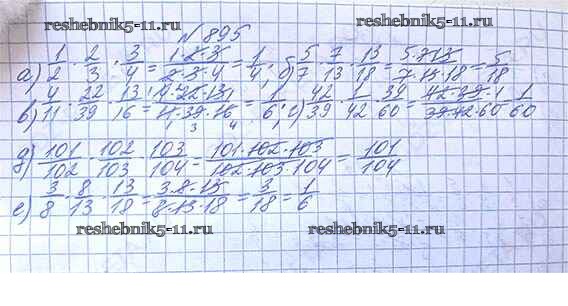 reshebnik5-11.ru reshebnik5-11.ru
№ 895
а) 1/2 · 2/3 · 3/4 = 1·2·3/2·3·4 = 1/4; б) 5/7 · 7/13 · 13/18 = 5·7·13/7·13·18 = 5/18
в) 4/11 · 22/39 · 13/16 = 4·22·13/11·39·16 = 1/6; г) 42/39 · 1/42 · 39/60 = 42·39·1/39·42·60 = 1/60
д) 101/102 · 102/103 · 103/104 = 101·102·103/102·103·104 = 101/104
е) 3/8 · 8/13 · 13/18 = 3·8·13/8·13·18 = 3/18 = 1/6
reshebnik5-11.ru reshebnik5-11.ru